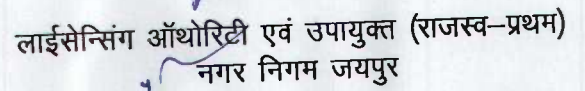 लाईसेन्सिंग ऑथोरिटी एवं उपायुक्त (राजस्व–प्रथम)
नगर निगम जयपुर